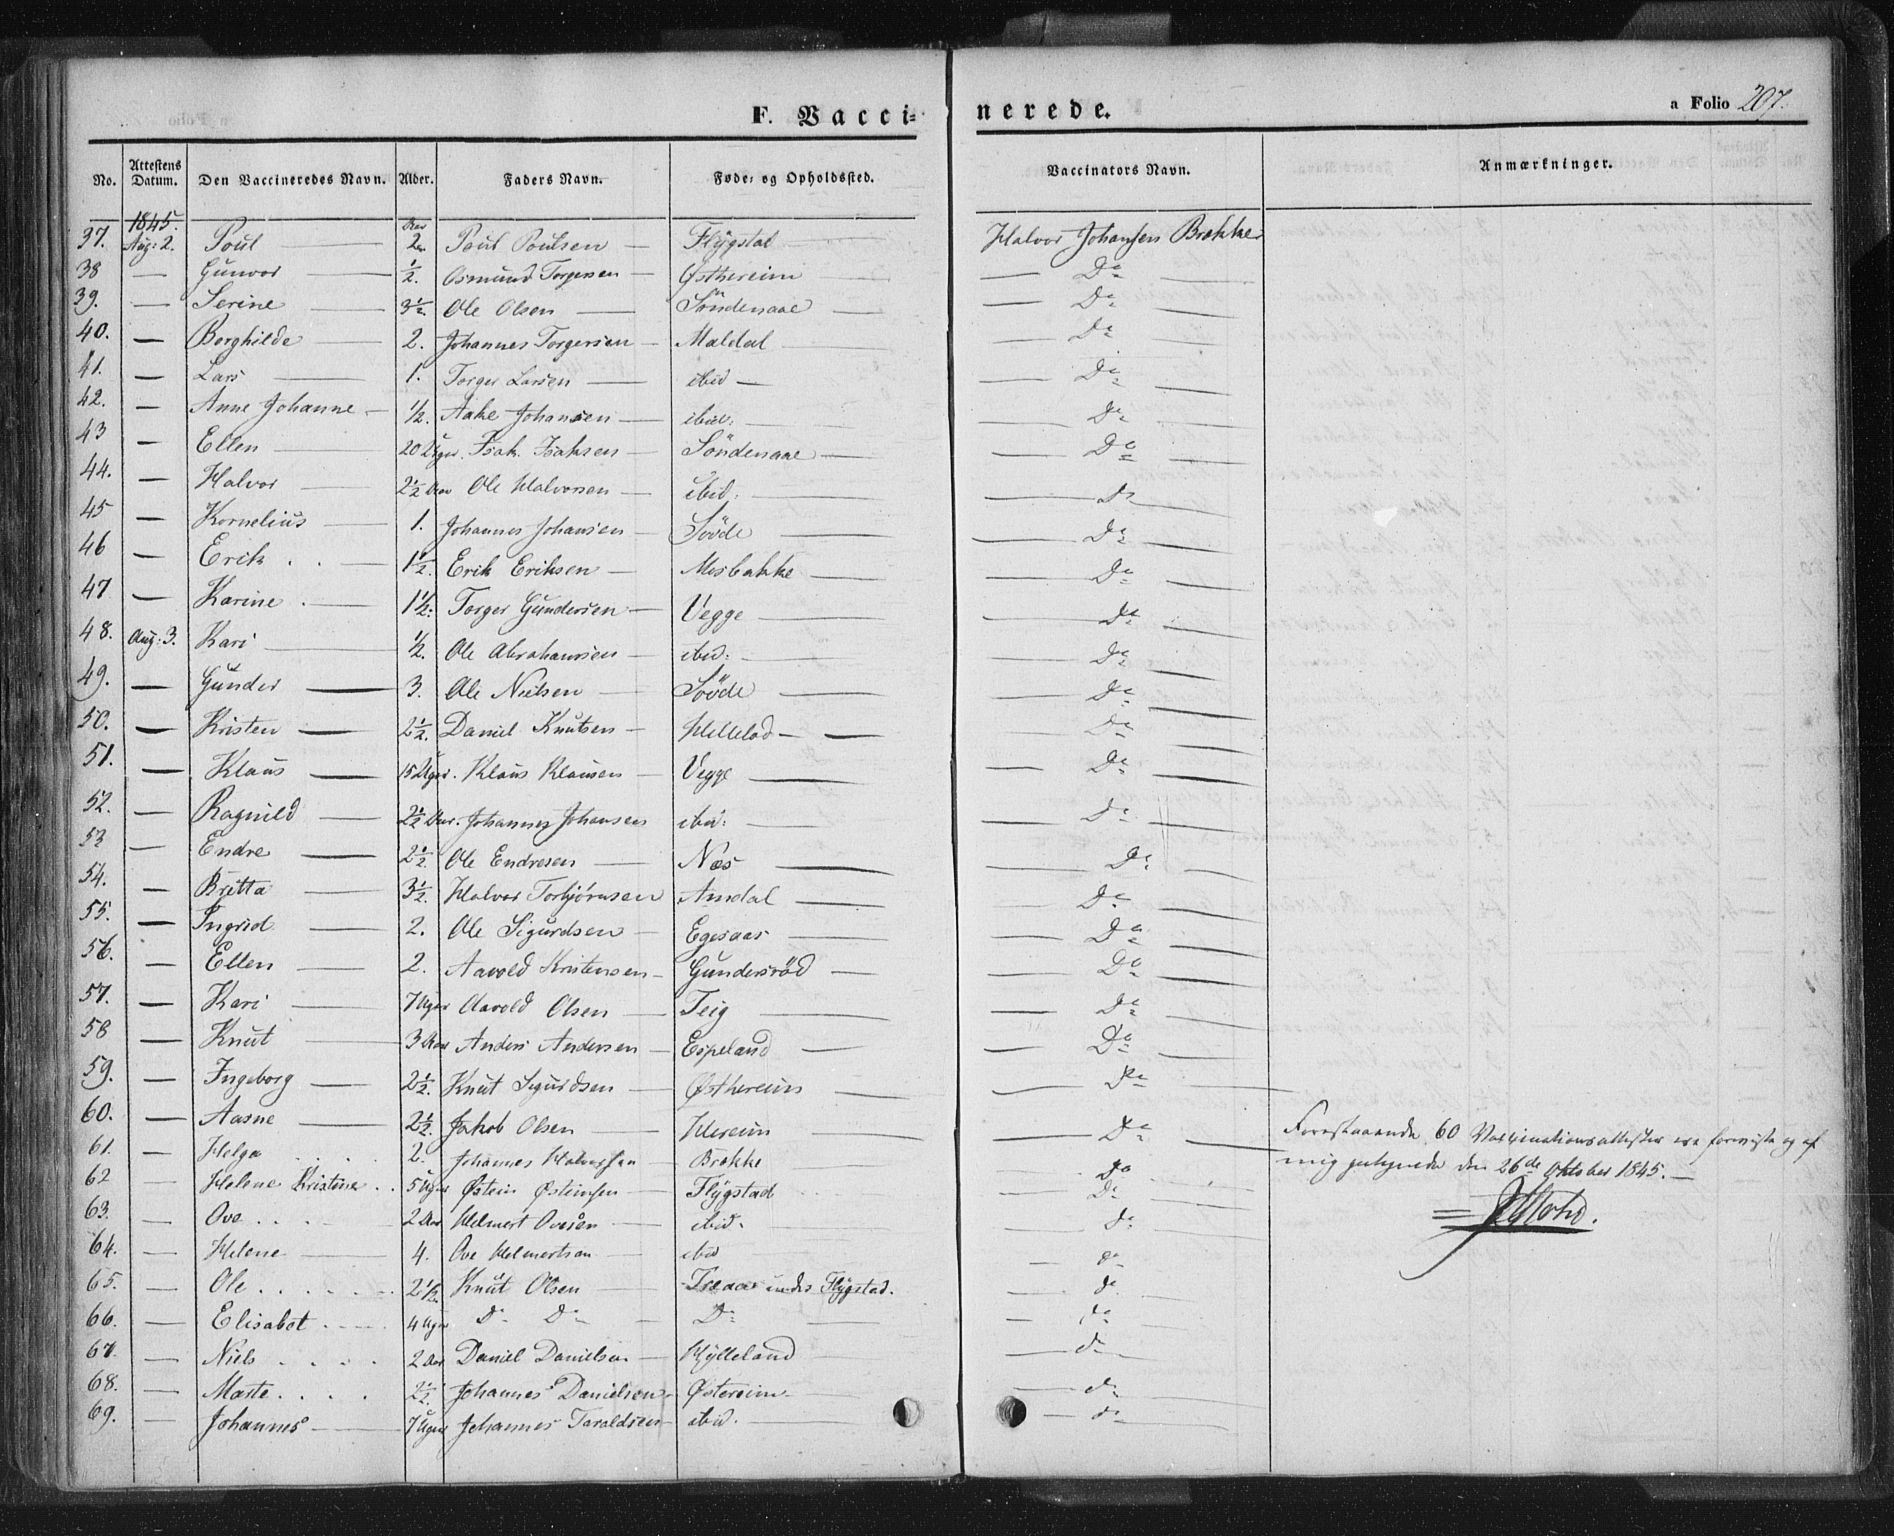 F. Vacci- nerede.
a Folio 207.
No. Attestens Datum. Den Vaccineredes Navn. Alder. Faders Navn. Føde- og Opholdssted. Vaccinators Navn. Anmærkninger.
1845. Aar
37. Aug: 2. Poul — 2 Poul Poulsen — Flÿgstal — Halvor Johansen Brekke
38 — Gunvor — ½. Osmund Torgersen — Østhereim — Do
39. — Serine — 3½. Ole Olsen — Söndenaae — Do
40. — Borghilde — 2. Johannes Torgersen — Maldal — Do
41. — Lars — 1. Torger Larsen — ibid — Do
42. — Anne Johanne — ½. Aake Johansen — ibid: — Do
43 — Ellen — 20 Uger. Isak Isaksen — Söndenaae — Do
44. — Halvor — 2½ Aar Ole Halvorsen — ibid: — Do
45 — Kornelius — 1. Johannes Johansen — Sööde — Do
46 — Erik . . — 1½. Erik Eriksen — Mosbakke — Do
47 — Karine . — 1½. Torger Gundersen — Vegge — Do
48. Aug: 3. Kari — ½. Ole Abrahamsen — ibid: — Do
49. — Gunder — 3. Ole Nielsen — Sööde — Do
50. — Kristen — 2½. Daniel Knutsen — Do
51. — Klaus — 15 Uger. Klaus Klausen — Vegge — Do
52. — Ragnild — 2½ Aar. Johannes Johansen ibid: — Do
53 — Endre — 2½. Ole Endresen — Næs — Do
54. — Britta — 3½. Halvor Torbjörnsen Amdal — Do
55. — Ingrid — 2. Ole Sigurdsen — Egesaas — Do
56. — Ellen — 2. Aavold Kristensen — Gundersröd — Do
57. — Kari — 7 Uger Aavold Olsen — Teig — Do
58 — Knut — 3 Aar Anders Andersen — Espeland — Do
59. — Ingeborg — 2½. Knut Sigurdsen — Østhereim — Do
60. — Aasne — 2½. Jakob Olsen — Hereim — Do Forestaaende 60 Vaccinationsattester ere foreviste og af
61. — Helga . . . . 2. Johannes Halvorsen — Brekke — Do mig paategnede den 26de Oktober 1845. —
62 — Helene Kristine . . 5 Uger Østein Østeinsen — Flÿgstad — Do
63. — Ove . . . 2 Aar Helmert Ovesen — ibid. — Do
64. — Helene — 4. Ove Helmertsen — ibid — do
65. — Ole . . . . . . 2½ Knut Olsen — under Flÿgstad. — do
66. — Elisabet . . . . 4 Uger Do Do — Do — do
67 — Niels . . . . 2 Aar Daniel Danielsen — Hÿlleland — do
68. — Marte . . . . 2½. Johannes Danielsen — Østereim — do
69. — Johannes — 7 Uger Johannes Taraldsen — ibid. — do